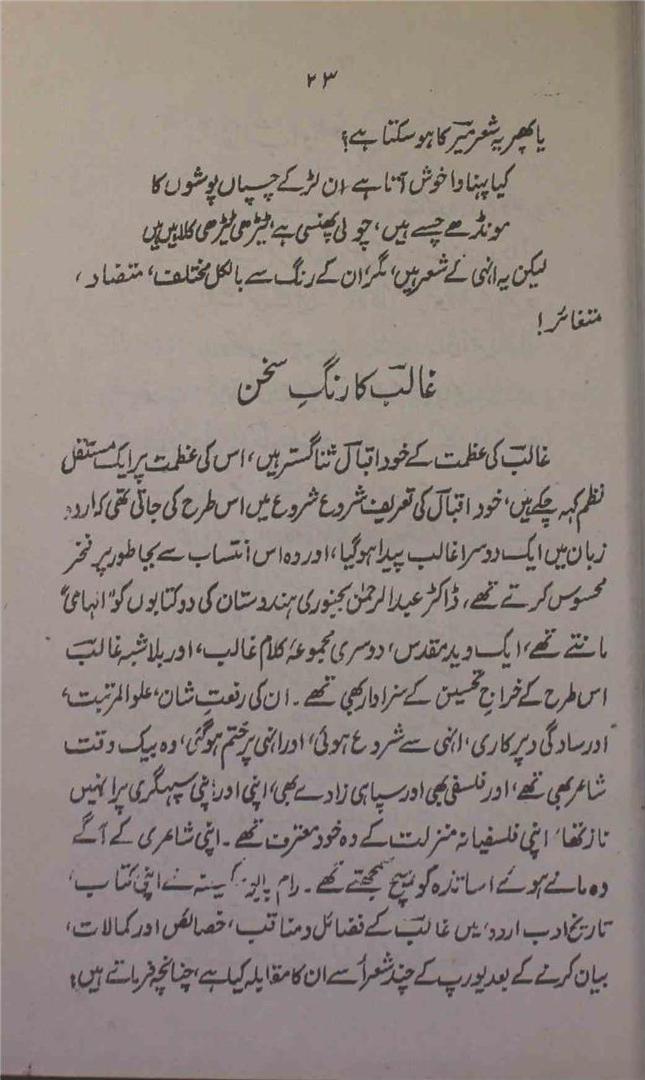 ۲۳
یا پھر یہ شعر میرؔ کا ہو سکتا ہے؟
کیا پہناوا خوش آتا ہے ان لڑکے چسپاں پوشوں کا
مونڈھے چسے ہیں، چولی پھنسی ہے، ٹیڑھی ٹیڑھی کلاہیں ہیں
لیکن یہ انہی کے شعر ہیں، مگر ان کے رنگ سے بالکل مختلف، متضاد،
متغائر!
غالبؔ کا رنگِ سخن
غالبؔ کی عظمت کے خود اقبالؔ ثنا گستر ہیں، اس کی عظمت پر ایک مستقل
نظم کہہ چکے ہیں، خود اقبالؔ کی تعریف شروع شروع میں اس طرح کی جاتی تھی کہ اردو
زبان میں ایک دوسرا غالب پیدا ہو گیا، اور وہ اس انتساب سے بجا طور پر فخر
محسوس کرتے تھے، ڈاکٹر عبدالرحمٰن بجنوری ہندوستان کی دو کتابوں کو "الہامی"
مانتے تھے، ایک وید مقدس، دوسری مجموعۂ کلام غالب، اور بلا شبہ غالبؔ
اس طرح کے خراجِ تحسین کے سزاوار بھی تھے۔ ان کی رفعتِ شان، علوِ المرتبت،
اور سادگی و پرکاری، انہی سے شروع ہوئی، اور انہی پر ختم ہو گئی، وہ بیک وقت
شاعر بھی تھے، اور فلسفی بھی اور سپاہی زادے بھی، اپنی اور اپنی سپہگری پر انہیں
ناز تھا، اپنی فلسفیانہ منزلت کے وہ خود معترف تھے۔ اپنی شاعری کے آگے
وہ مانے ہوئے اساتذہ کو ہیچ سمجھتے تھے۔ رام بابو سکسینہ نے اپنی کتاب،
تاریخ ادب اردو، میں غالبؔ کے فضائل و مناقب، خصائص اور کمالات،
بیان کرنے کے بعد یورپ کے چند شعرأ سے ان کا مقابلہ کیا ہے، چنانچہ فرماتے ہیں؛